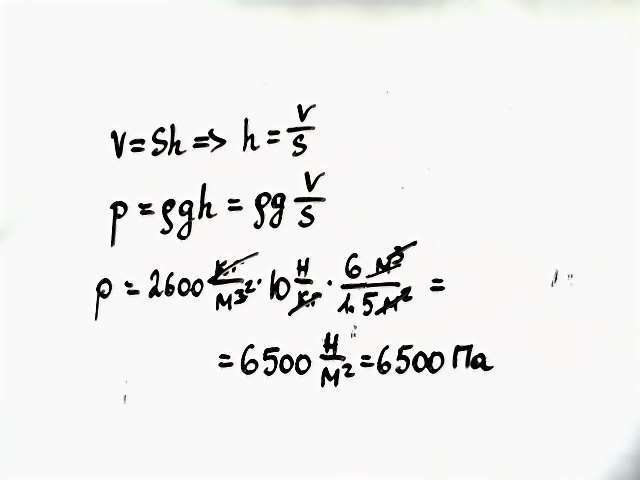 V = Sh => h = V/S
p = ρgh = ρg V/S
p = 2600 кг/м³ · 10 Н/кг · 6 м³/ 5м² =
= 6500 Н/м² = 6500 Па